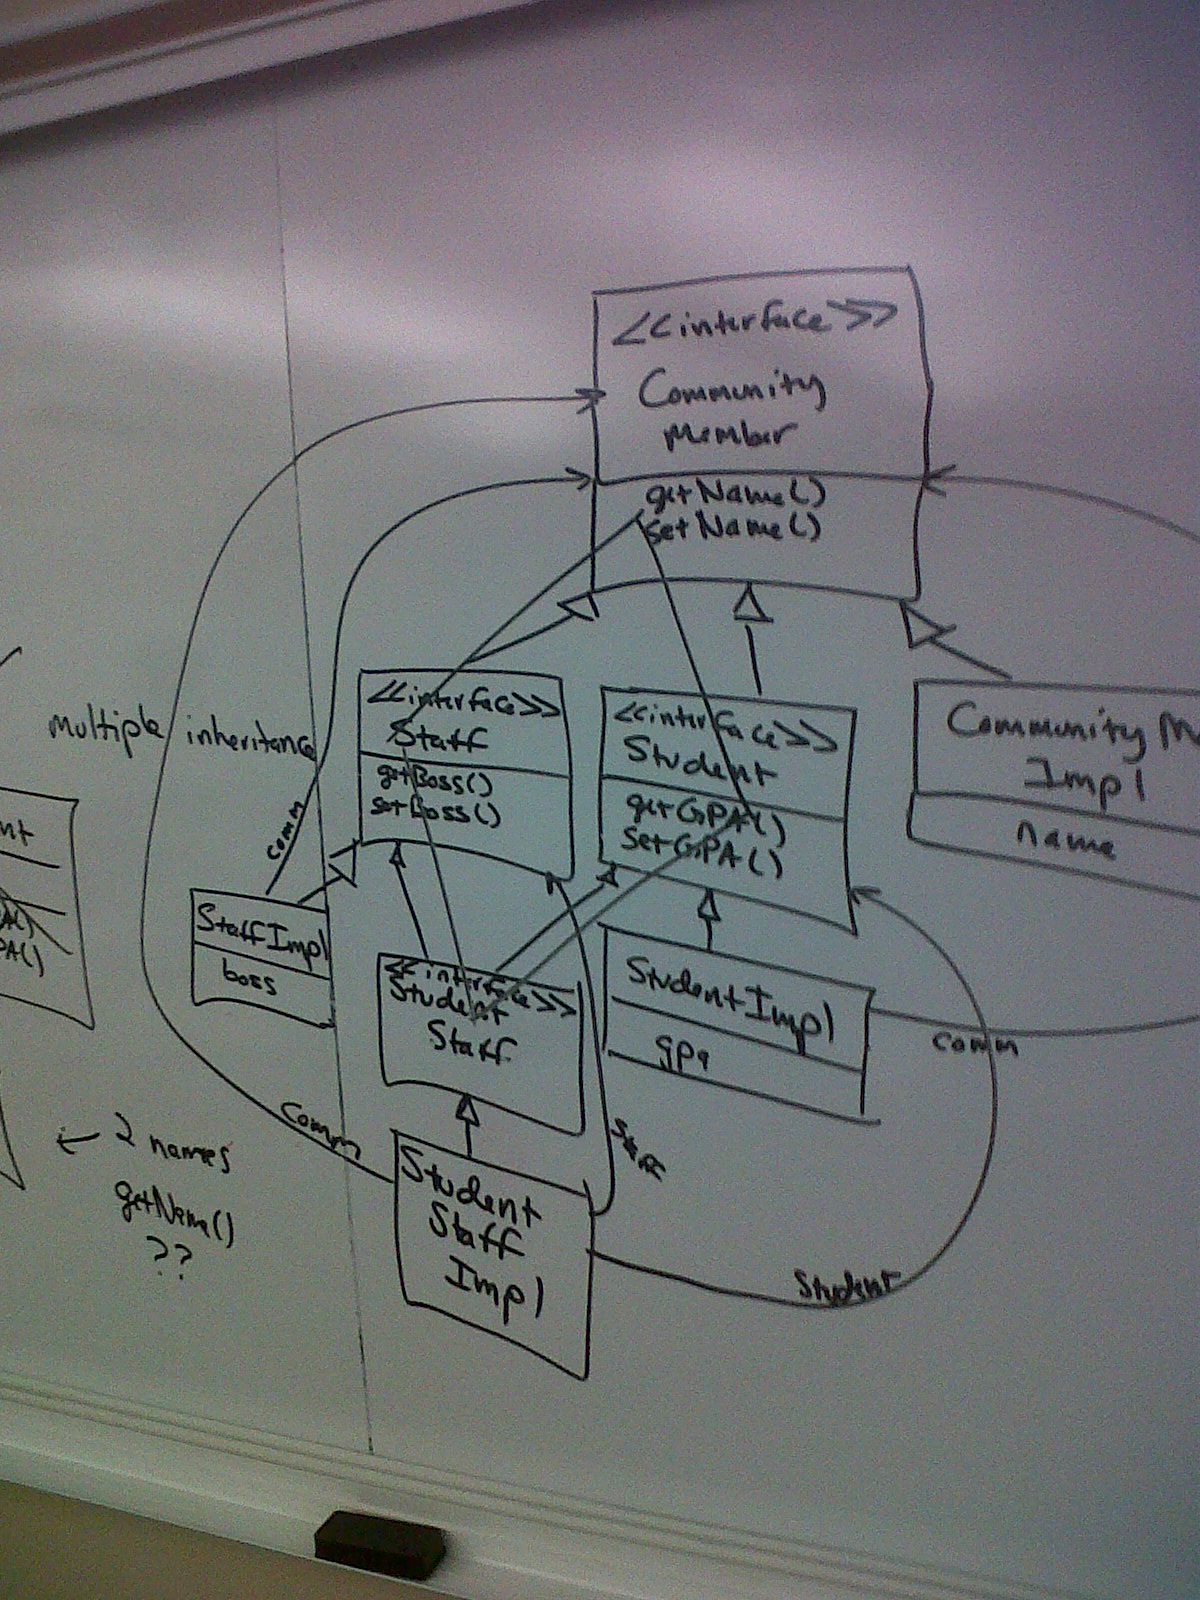 <<interface>>
Community
Member
getName()
setName()
multiple inheritance
<<interface>>
Staff
getBoss()
setBoss()
<<interface>>
Student
getGPA()
setGPA()
Community M
Impl
name
comm
StaffImpl
boss
<<interface>>
Student
Staff
StudentImpl
gpa
comm
nt
PA()
comm
Staff
Student
Staff
Impl
Student
← 2 names
getName()
??